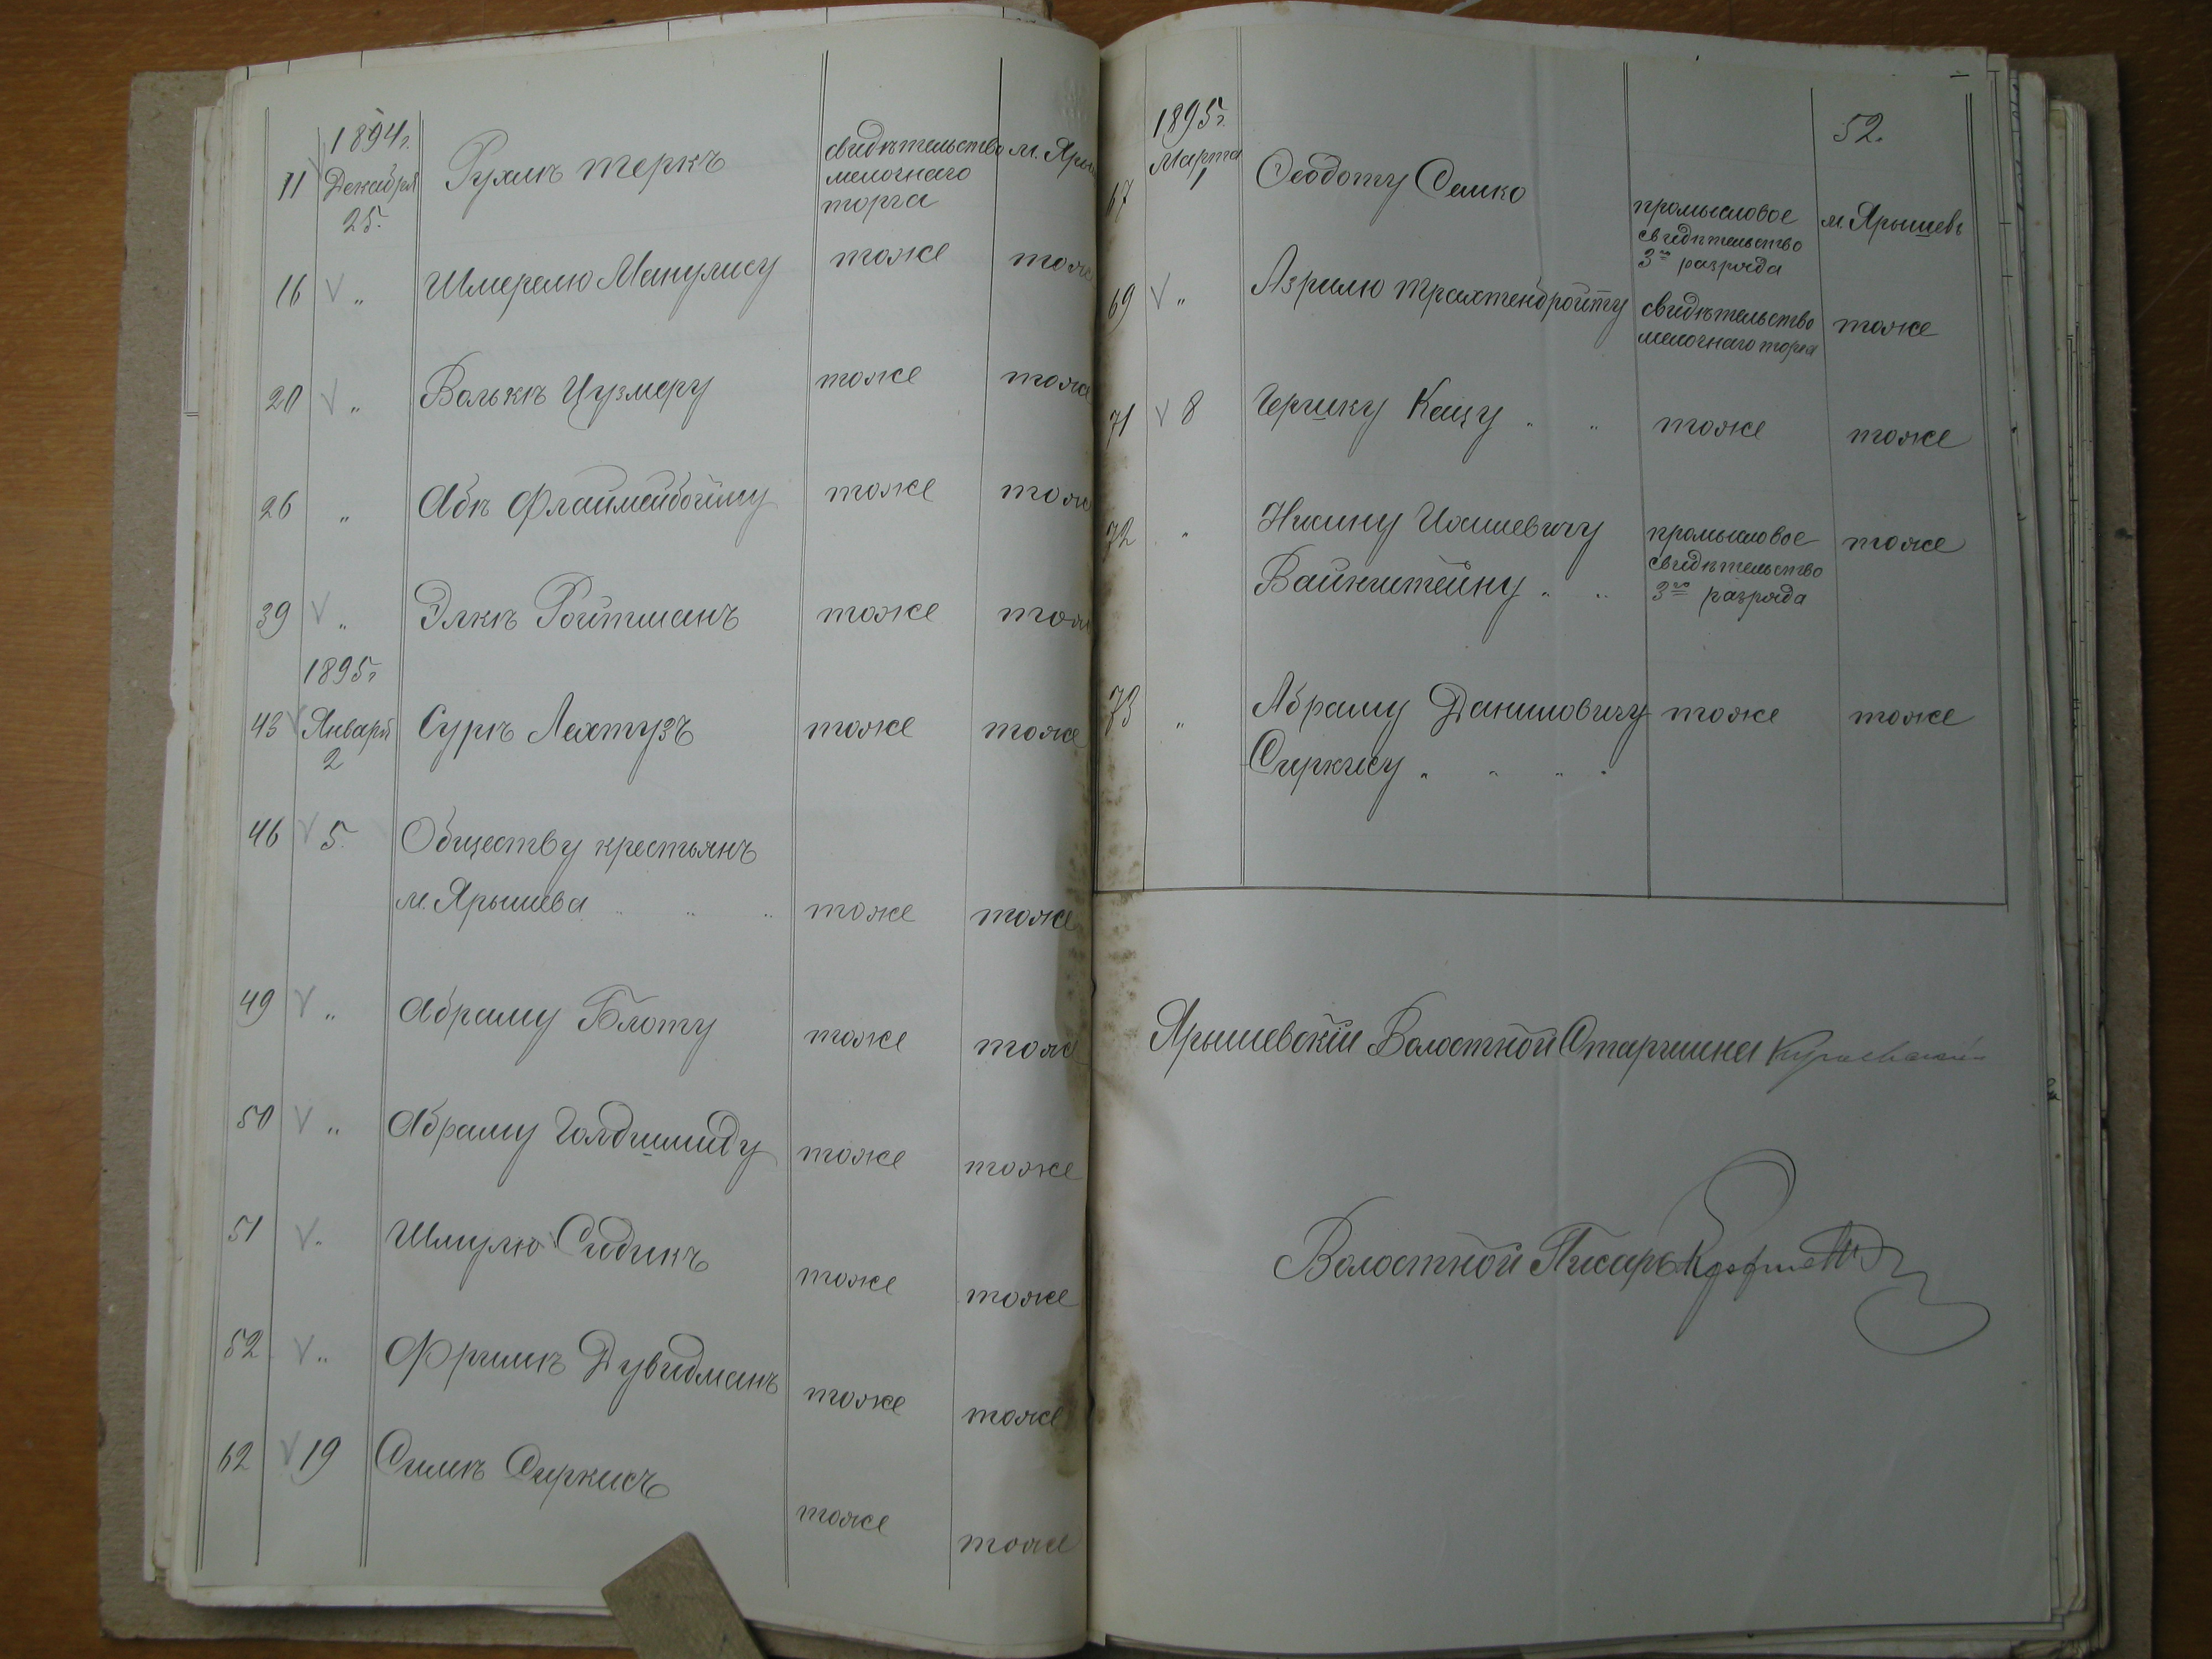 1894г.
11 Декабря 25. Рухлѣ Теркъ свидѣтельство мелочнаго торга м. Яры
16 " Шмерелю Манулису тоже тоже
20 " Волькѣ Цузмеру тоже тоже
26 " Абѣ Флаймейбойму тоже тоже
39 " Элкѣ Ройтманъ тоже тоже
1895г
43 Января 2 Суркѣ Лехтузъ тоже тоже
46 5 Обществу крестьянъ
м. Ярышева " " " тоже тоже
49 " Абраму Блоту тоже тоже
50 " Абраму Голдшмиду тоже тоже
51 " Шмулю Сидикъ тоже тоже
52 " Фримѣ Дувидманъ тоже тоже
62 19 Симѣ Сиркисъ тоже тоже
52.
1895г.
67 Марта 1 Ѳеодоту Семко промысловое свидѣтельство 3го разряда м. Ярышевъ
69 " Азрилю Трахтенбройту свидѣтельство мелочнаго торга тоже
71 8 Гершку Кацу " " тоже тоже
72 " Нисину Ихилевичу промысловое тоже
Вайнштейну " " свидѣтельство
3го разряда
73 " Абраму Даниловичу тоже тоже
Сиркису " " " "
Ярышевскій Волостной Старшина
Волостной Писарь